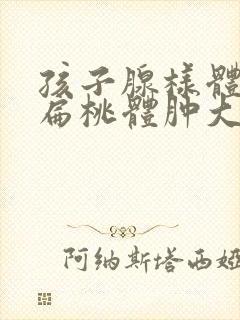 孩子腺樣體
扁桃體肿大
阿纳斯塔西娅